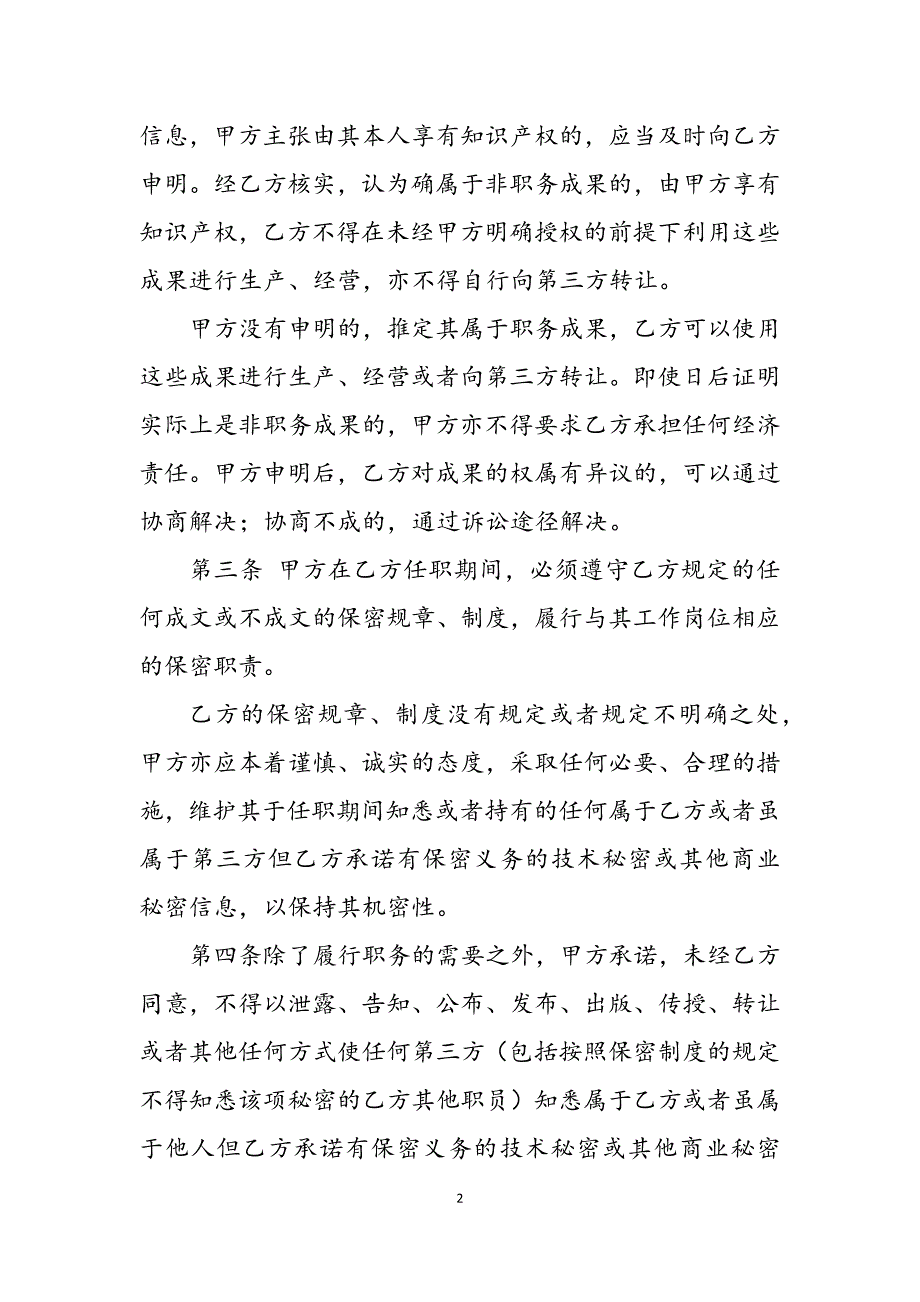 信息，甲方主张由其本人享有知识产权的，应当及时向乙方
申明。经乙方核实，认为确属于非职务成果的，由甲方享有
知识产权，乙方不得在未经甲方明确授权的前提下利用这些
成果进行生产、经营，亦不得自行向第三方转让。
甲方没有申明的，推定其属于职务成果，乙方可以使用
这些成果进行生产、经营或者向第三方转让。即使日后证明
实际上是非职务成果的，甲方亦不得要求乙方承担任何经济
责任。甲方申明后，乙方对成果的权属有异议的，可以通过
协商解决；协商不成的，通过诉讼途径解决。
第三条 甲方在乙方任职期间，必须遵守乙方规定的任
何成文或不成文的保密规章、制度，履行与其工作岗位相应
的保密职责。
乙方的保密规章、制度没有规定或者规定不明确之处，
甲方亦应本着谨慎、诚实的态度，采取任何必要、合理的措
施，维护其于任职期间知悉或者持有的任何属于乙方或者虽
属于第三方但乙方承诺有保密义务的技术秘密或其他商业
秘密信息，以保持其机密性。
第四条除了履行职务的需要之外，甲方承诺，未经乙方
同意，不得以泄露、告知、公布、发布、出版、传授、转让
或者其他任何方式使任何第三方（包括按照保密制度的规定
不得知悉该项秘密的乙方其他职员）知悉属于乙方或者虽属
于他人但乙方承诺有保密义务的技术秘密或其他商业秘密
2